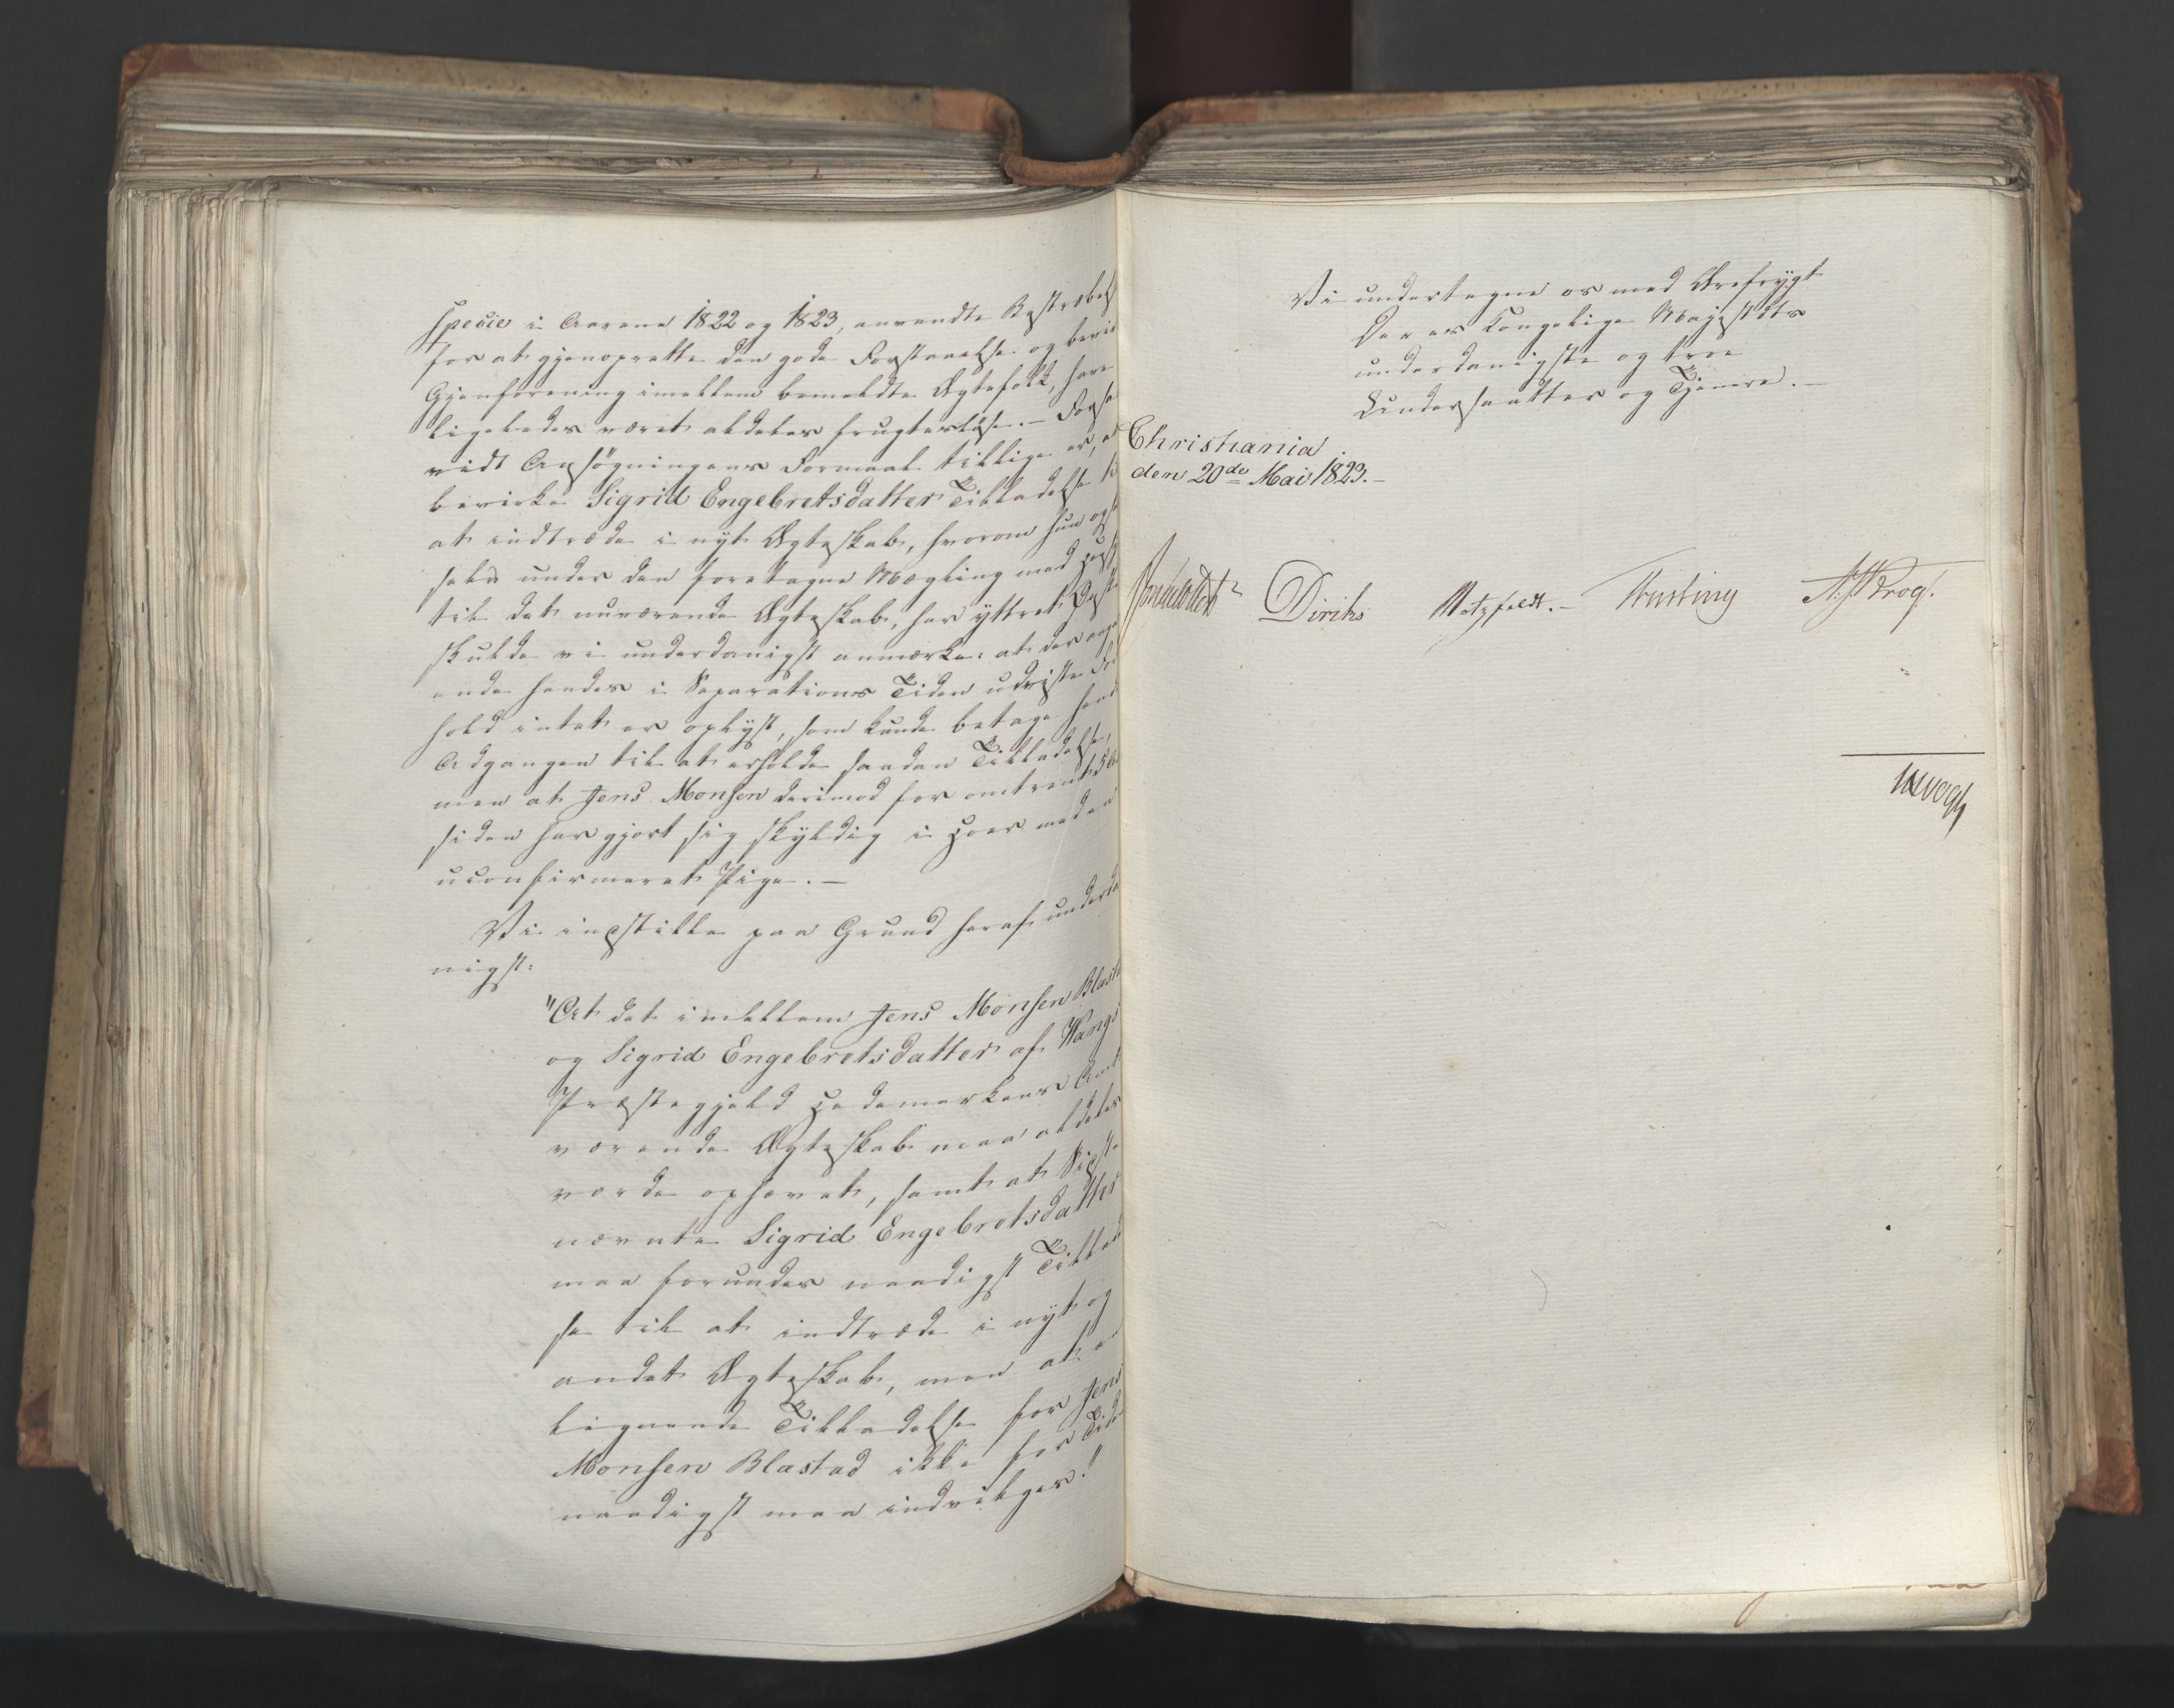 specie i Aarene 1822 og 1823, anvendte Bestræbels
for at gjenoprette den gode Forstaaelse og bevir
Gjenforening imellem bemeldte Ægtefolk, have
ligeledes været aldeles frugtesløse. – Forsa
vidt Ansøgningens Formaal tillige er, at
bevirke Sigrid Engebretsdatter Tilladelse ti
at indtræde i nyt Ægteskab, hvorom hun ogs
selv under den foretagne Mægling med
til det nuværende Ægteskab, har yttret
skulde vi underdanigst anmærke: at der ang
ende hendes i Separations Tiden udviste For
hold intet er oplyst, som kunde betage hend
Adgangen til at erholde saadan Tilladelse,
men at Jens Monsen derimod for omtrent
siden har gjort sig skyldig i Hoer med en
uconfirmeret Pige. –
Vi indstille paa Grund heraf underda
nigst:
"At det imellem Jens Monsen Blasta
og Sigrid Engebretsdatter af Wangs
Præstegjeld Hedemarkens Amt
værende Ægteskab maa aldeles
vorde ophævet, samt at Sidst-
nævnte Sigrid Engebretsdatter
maa forundes naadigst Tillad
se til at indtræde i nyt og
andet Ægteskab, men at
lignende Tilladelse for Jens
Monsen Blastad ikke for Tide
naadigst maa indvilges."
Vi undertegne os med Ærefrygt
Deres Kongelige Majestæts
underdanigste og troe
Undersaatter og Tjenere. –
Christiania
den 20de Mai 1823. –
Diriks
Motzfeldt. –
Krogh